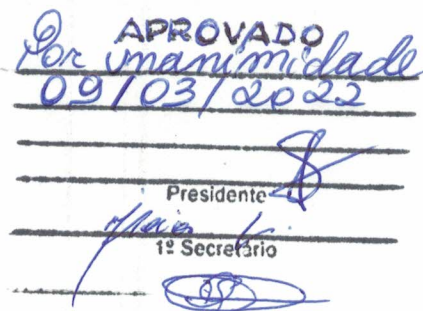 APROVADO
Por unanimidade
09/03/2022
Presidente
1º Secretário